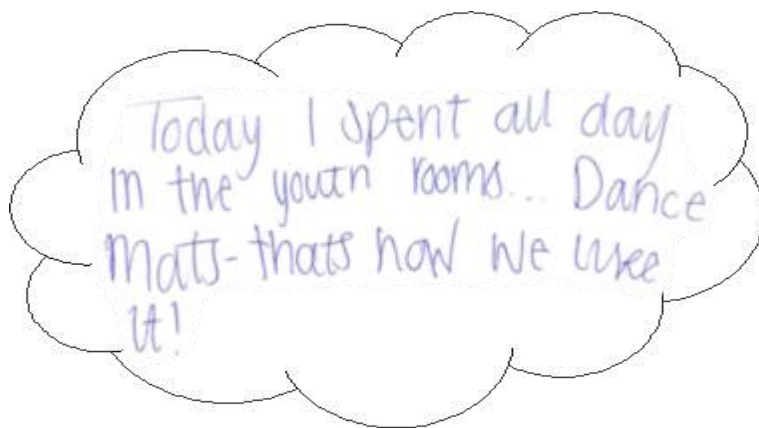 Today I spent all day
in the youth rooms... Dance
Mats-thats how we like
it!